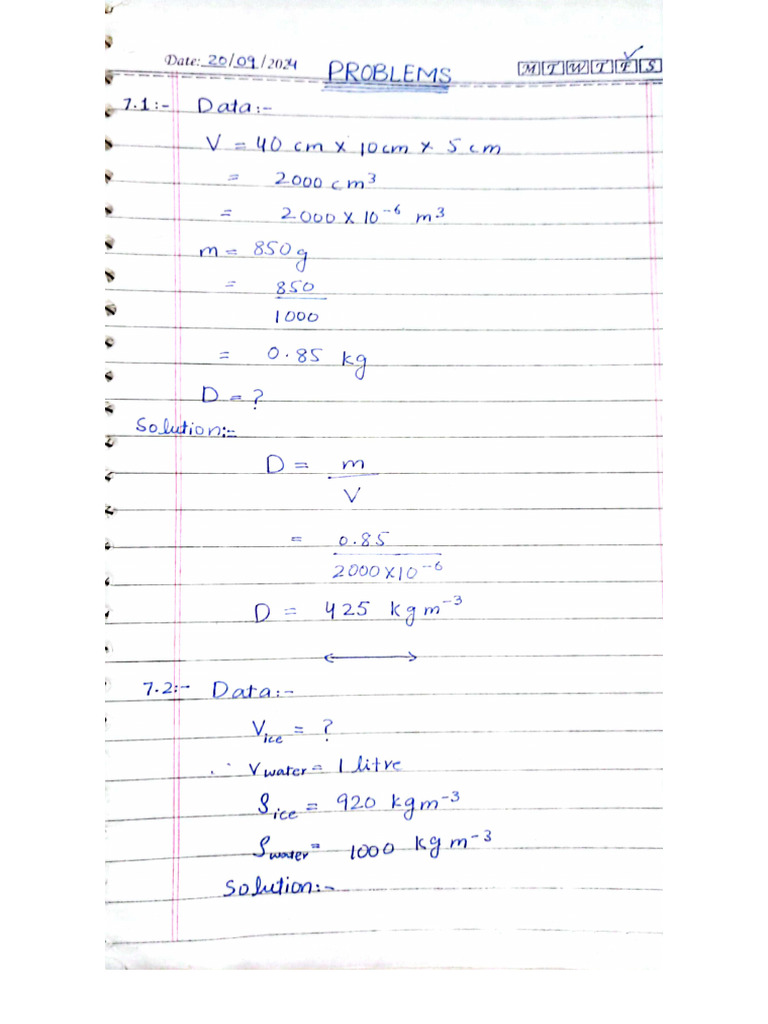 Date: 20/09/2024 PROBLEMS M T W T F S
7.1:- Data:-
V = 40 cm × 10cm × 5 cm
= 2000 cm³
= 2000 × 10⁻⁶ m³
m = 850g
= 850
1000
= 0.85 kg
D = ?
Solution:-
D = m
V
= 0.85
2000×10⁻⁶
D = 425 kgm⁻³
7.2:- Data:-
Vice = ?
∴ Vwater = 1 litre
ρice = 920 kgm⁻³
ρwater = 1000 kgm⁻³
Solution:-